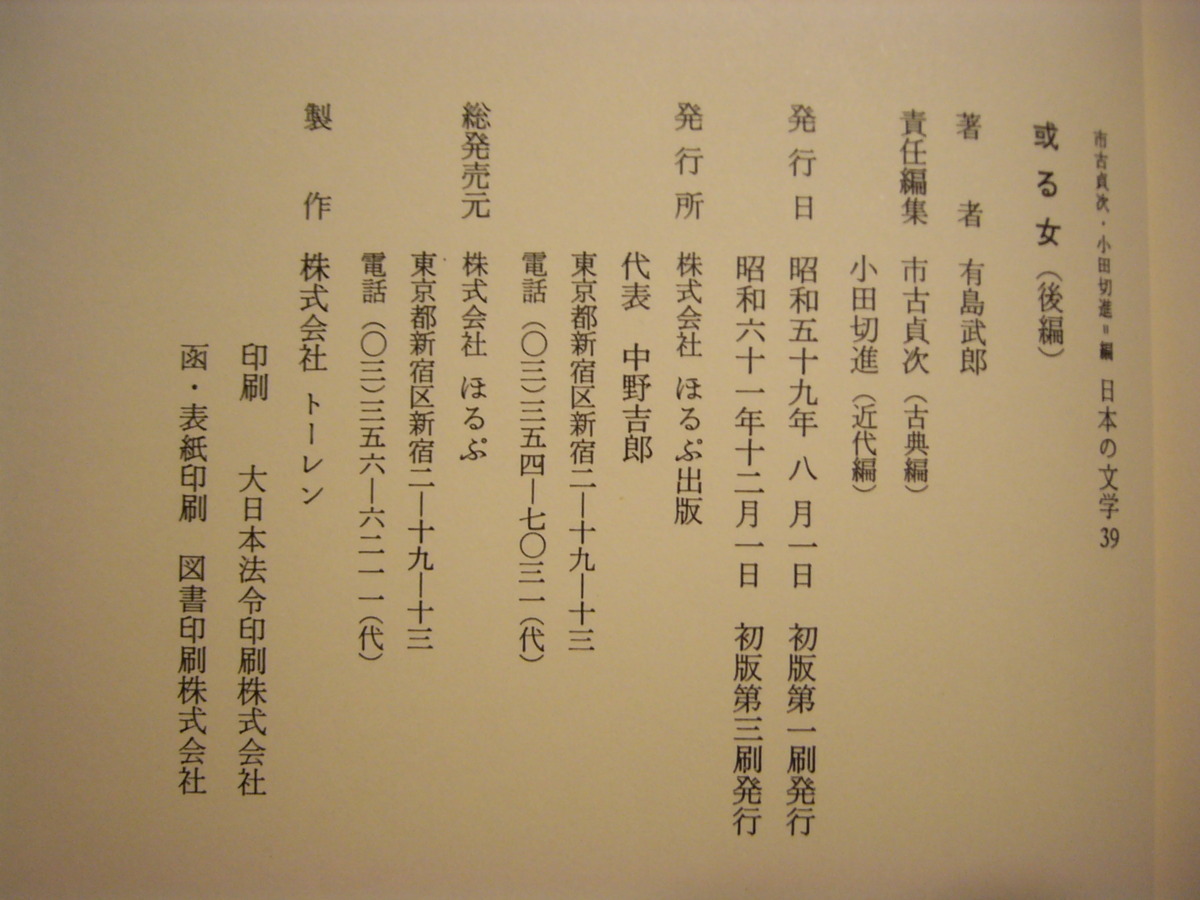 市古貞次・小田切進＝編 日本の文学 39
或る女（後編）
著者 有島武郎
責任編集 市古貞次（古典編）
小田切進（近代編）
発行日 昭和五十九年 八 月一日 初版第一刷発行
昭和六十一年十二月一日 初版第三刷発行
発行所 株式会社 ほるぷ出版
代表 中野吉郎
東京都新宿区新宿二―十九―十三
電話（〇三）三五四―七〇三一（代）
総発売元 株式会社 ほるぷ
東京都新宿区新宿二―十九―十三
電話（〇三）三五六―六二一一（代）
製作 株式会社 トーレン
印刷 大日本法令印刷株式会社
函・表紙印刷 図書印刷株式会社